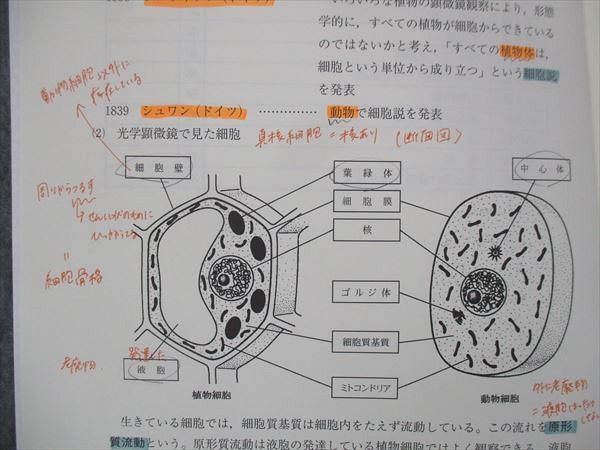 いろいろな植物の顕微鏡観察により，形態
学的に，すべての植物が細胞からできている
のではないかと考え，「すべての植物体は，
細胞という単位から成り立つ」という細胞説
を発表
1839 シュワン（ドイツ） …………… 動物で細胞説を発表
(2) 光学顕微鏡で見た細胞 真核細胞＝核あり (断面図)
動物細胞以外に
存在している
細胞壁
葉緑体
中心体
細胞膜
核
ゴルジ体
細胞質基質
ミトコンドリア
細胞骨格
発達した
液胞
老廃物
植物細胞
動物細胞
生きている細胞では，細胞質基質は細胞内をたえず流動している。この流れを原形
質流動という。原形質流動は液胞の発達している植物細胞ではよく観察できる。液胞